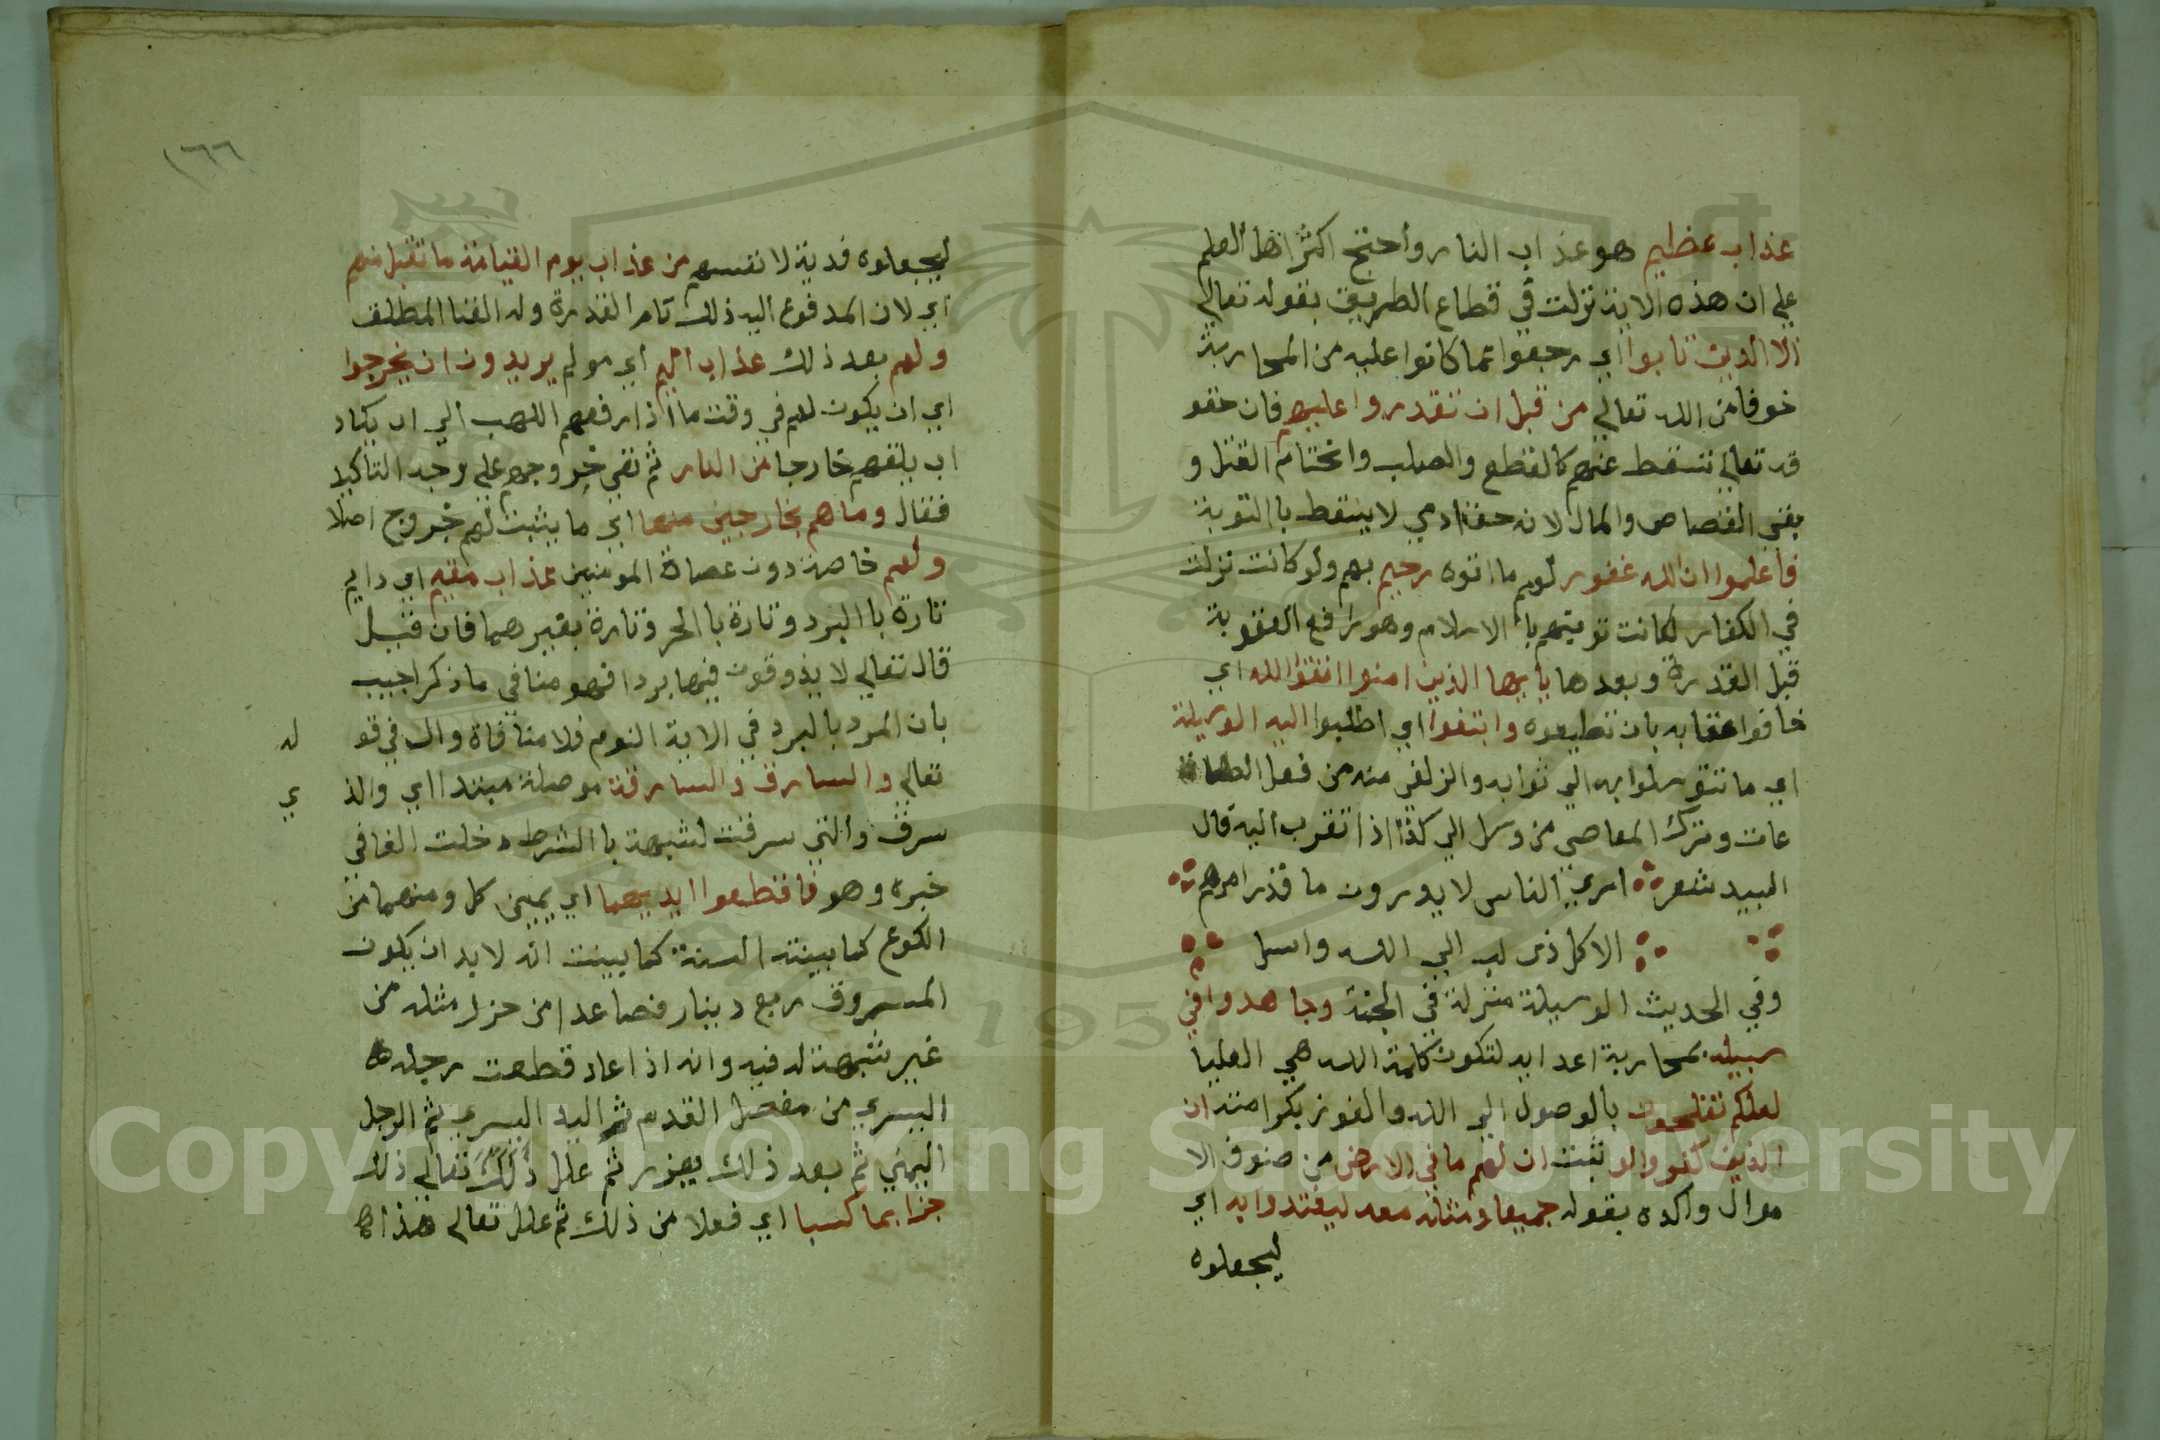 عذاب عظيم هو عذاب النار وأحتج اكثر اهل العلم
علي ان هذه الاية نزلت في قطاع الطريق بقوله تعالي
الا الذين تابوا اي رجعوا عما كانوا عليه من المحاربة
خوفا من الله تعالي من قبل ان تقدروا عليهم فان حقو
قه تعالي تسقط عنهم كالقطع والصلب وانحتام القتل و
يقي القصاص والمال لانه حق ادمي لا يسقط باالتوبة
فاعلموا ان الله غفور لهم ما اتوه رحيم بهم ولو كانت نزلت
في الكفار لكانت توبتهم باالاسلام وهو رافع العقوبة
قبل القدرة وبعدها يأيها الذين امنوا اتقوا الله اي
خافوا عقابه بان تطيعوه وابتغوا اي اطلبوا اليه الوسيلة
اي ما تتوسلوا به الي ثوابه والزلفي منه من فعل الطا
عات وترك المعاصي من وسل الي كذا اذا تقرب اليه قال
البيد شعر اري الناس لا يدرون ما قدر امرهم
الا كل ذي لب الي الله واسل
وفي الحديث الوسيلة منزلة في الجنة وجاهدوا في
سبيله بمحاربة اعدايه لتكون كلمة الله هي العليا
لعلكم تفلحون بالوصول الي الله والفوز بكرامته ان
الذين كفروا لو ثبت ان لهم ما في الارض من صنوف الا
موال واكده بقوله جميعا ومثله معه ليفتدوا به اي
ليجعلوه
١٦٦
ليجعلوه فدية لانفسهم من عذاب يوم القيامة ما تقبل منهم
اي لان المدفوع اليه ذلك تام القدرة وله الغنا المطلق
ولهم بعد ذلك عذاب اليم اي مولم يريدون ان يخرجوا
اي ان يكون لهم في وقت ما اذا رفعهم اللهب الي ان يكاد
ان يلقهم خارجا من النار ثم نفي خروجهم علي وجه التاكيد
فقال وما هم بخارجين منها اي ما يثبت لهم خروج اصلا
ولهم خاصة دون عصاة المومنين عذاب مقيم اي دايم
تارة باالبرد وتارة باالحر وتارة بغيرهما فان قيل
قال تعالي لا يذوقون فيها بردا فهو منافي ما ذكر اجيب
بان المرد بالبرد في الاية النوم فلا منافاة وال في قو
له
تعالي والسارق والسارقة موصلة مبتدا اي والذ
ي
سرق والتي سرقت لشبهه باالشرط دخلت الفا في
خبره وهو فاقطعوا ايديهما اي يمين كل ومنهما من
الكوع كما بينته السنة كما بينت انه لا بد ان يكون
المسروق ربع دينار فصاعدا من حزر مثله من
غير شبهة له فيه وانه اذا عاد قطعت رجله
اليسري من مفصل القدم ثم اليد اليسري ثم الرجل
اليمني ثم بعد ذلك يعزر ثم علل ذلك تعالي ذلك
جزا بما كسبا اي فعلا من ذلك ثم علل تعالي هذا
Copyright © King Saud University
1957